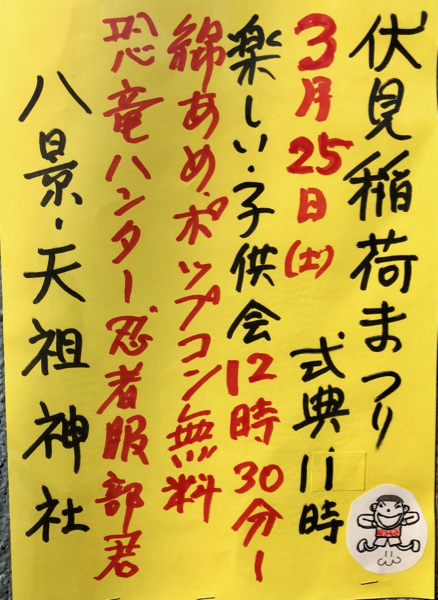 伏見稲荷まつり
3月25日(土) 式典11時
楽しい・子供会12時30分ー
綿あめ、ポップコン無料
恐竜ハンター忍者服部君
八景・天祖神社